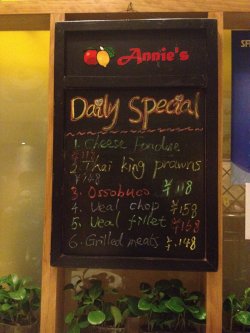 Annie's
Daily Special
1. Cheese fondue
¥118
2. Thai king prawns
¥148
3. Ossobuco ¥118
4. Veal chop ¥158
5. Veal fillet ¥158
6. Grilled meats ¥148
Annie's